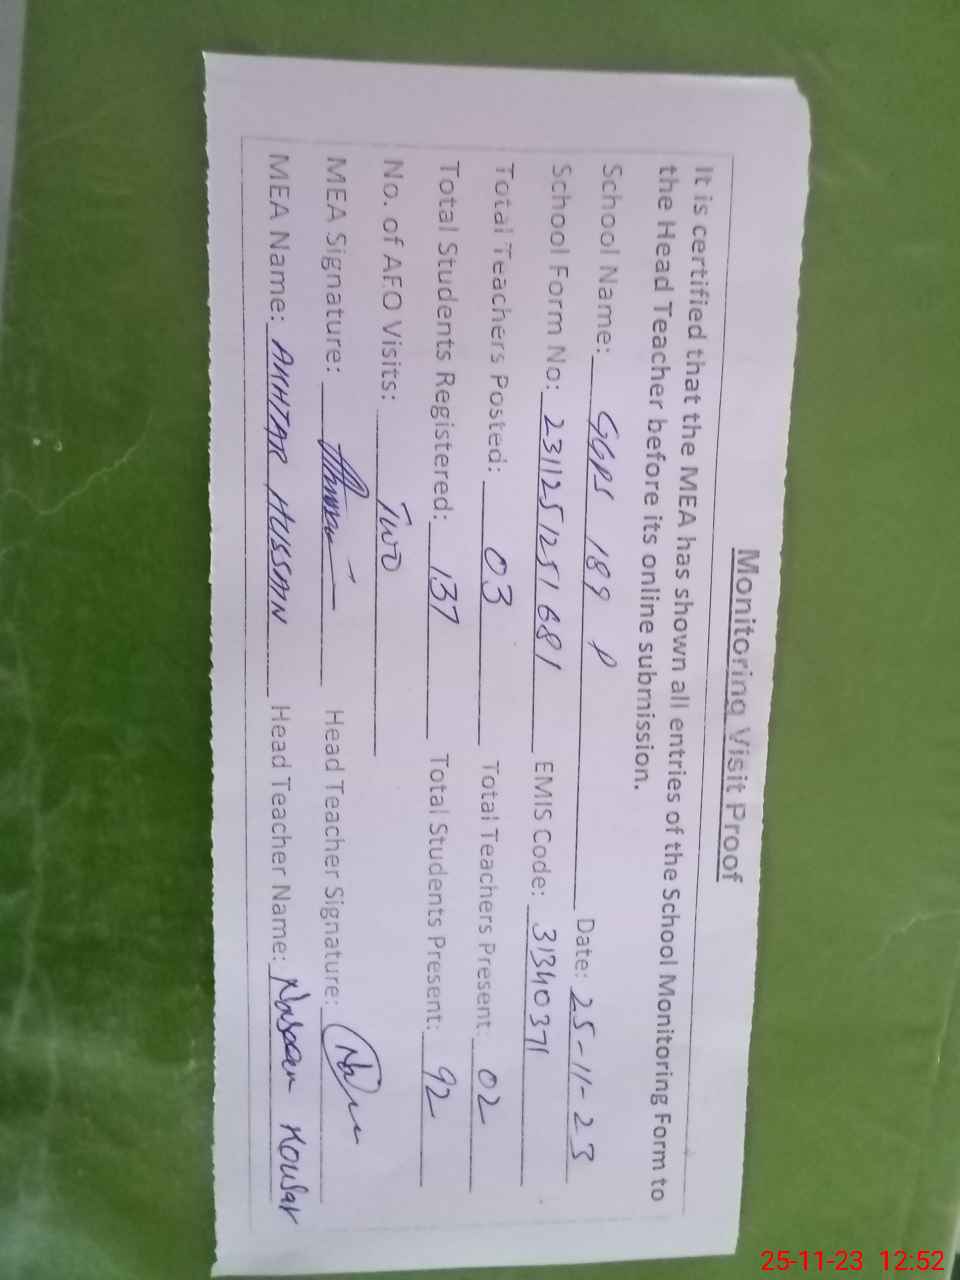 Monitoring Visit Proof
It is certified that the MEA has shown all entries of the School Monitoring Form to
the Head Teacher before its online submission.
School Name: GGPS 189 P Date: 25-11-23
School Form No: 2311251251681 EMIS Code: 31340371
Total Teachers Posted: 03 Total Teachers Present: 02
Total Students Registered: 137 Total Students Present: 92
No. of AEO Visits: Two
MEA Signature: Head Teacher Signature:
MEA Name: AKHTAR HUSSAIN Head Teacher Name: Kousar
25-11-23 12:52